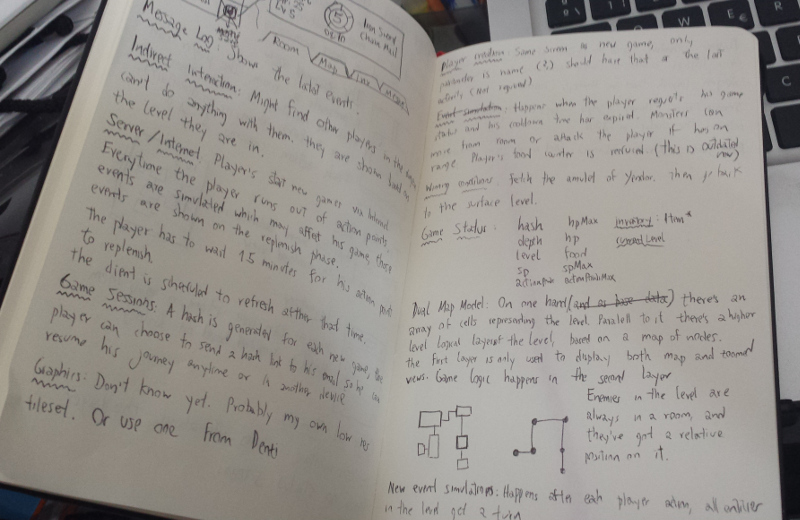 Room
Map
Iron Sword
Chain Mail
Message Log: Shows the latest events.
Indirect Interaction: Might find other players in the
can't do anything with them. they are shown
the level they are in.
Server/Internet: Player's start new games via Internet
Everytime the player runs out of action points,
events are simulated which may affect his game, those
events are shown on the replenish phase.
The player has to wait 15 minutes for his action points
to replenish
the client is scheduled to refresh after that time.
Game Sessions: A hash is generated for each new game, the
player can choose to send a hash link to his email so he can
resume his journey anytime or in another device
Graphics: Don't know yet. Probably my own low res
tileset. Or use one from
Player creation: Same screen as new game, only
parameter is name (?) should have that as the last
activity (not required)
Event simulation: Happens when the player requests his game
status and his cooldown time has expired. Monsters can
move from room or attack the player if he's on
range. Player's food counter is reduced. (this is outdated
now)
Winning conditions: Fetch the amulet of Yendor. Then go back
to the surface level.
Game Status: hash hpMax inventory: Item*
depth hp currentLevel
level food
sp spMax
Dual Map Model: On one hand (and as base data) there's an
array of cells representing the level. Parallell to it there's a higher
level logical layer of the level, based on a map of nodes.
the first layer is only used to display both map and zoomed
views. Game logic happens in the second layer
Enemies in the level are
always in a room, and
they've got a relative
position on it.
New event simulation: Happens after each player action, all
in the level get a turn